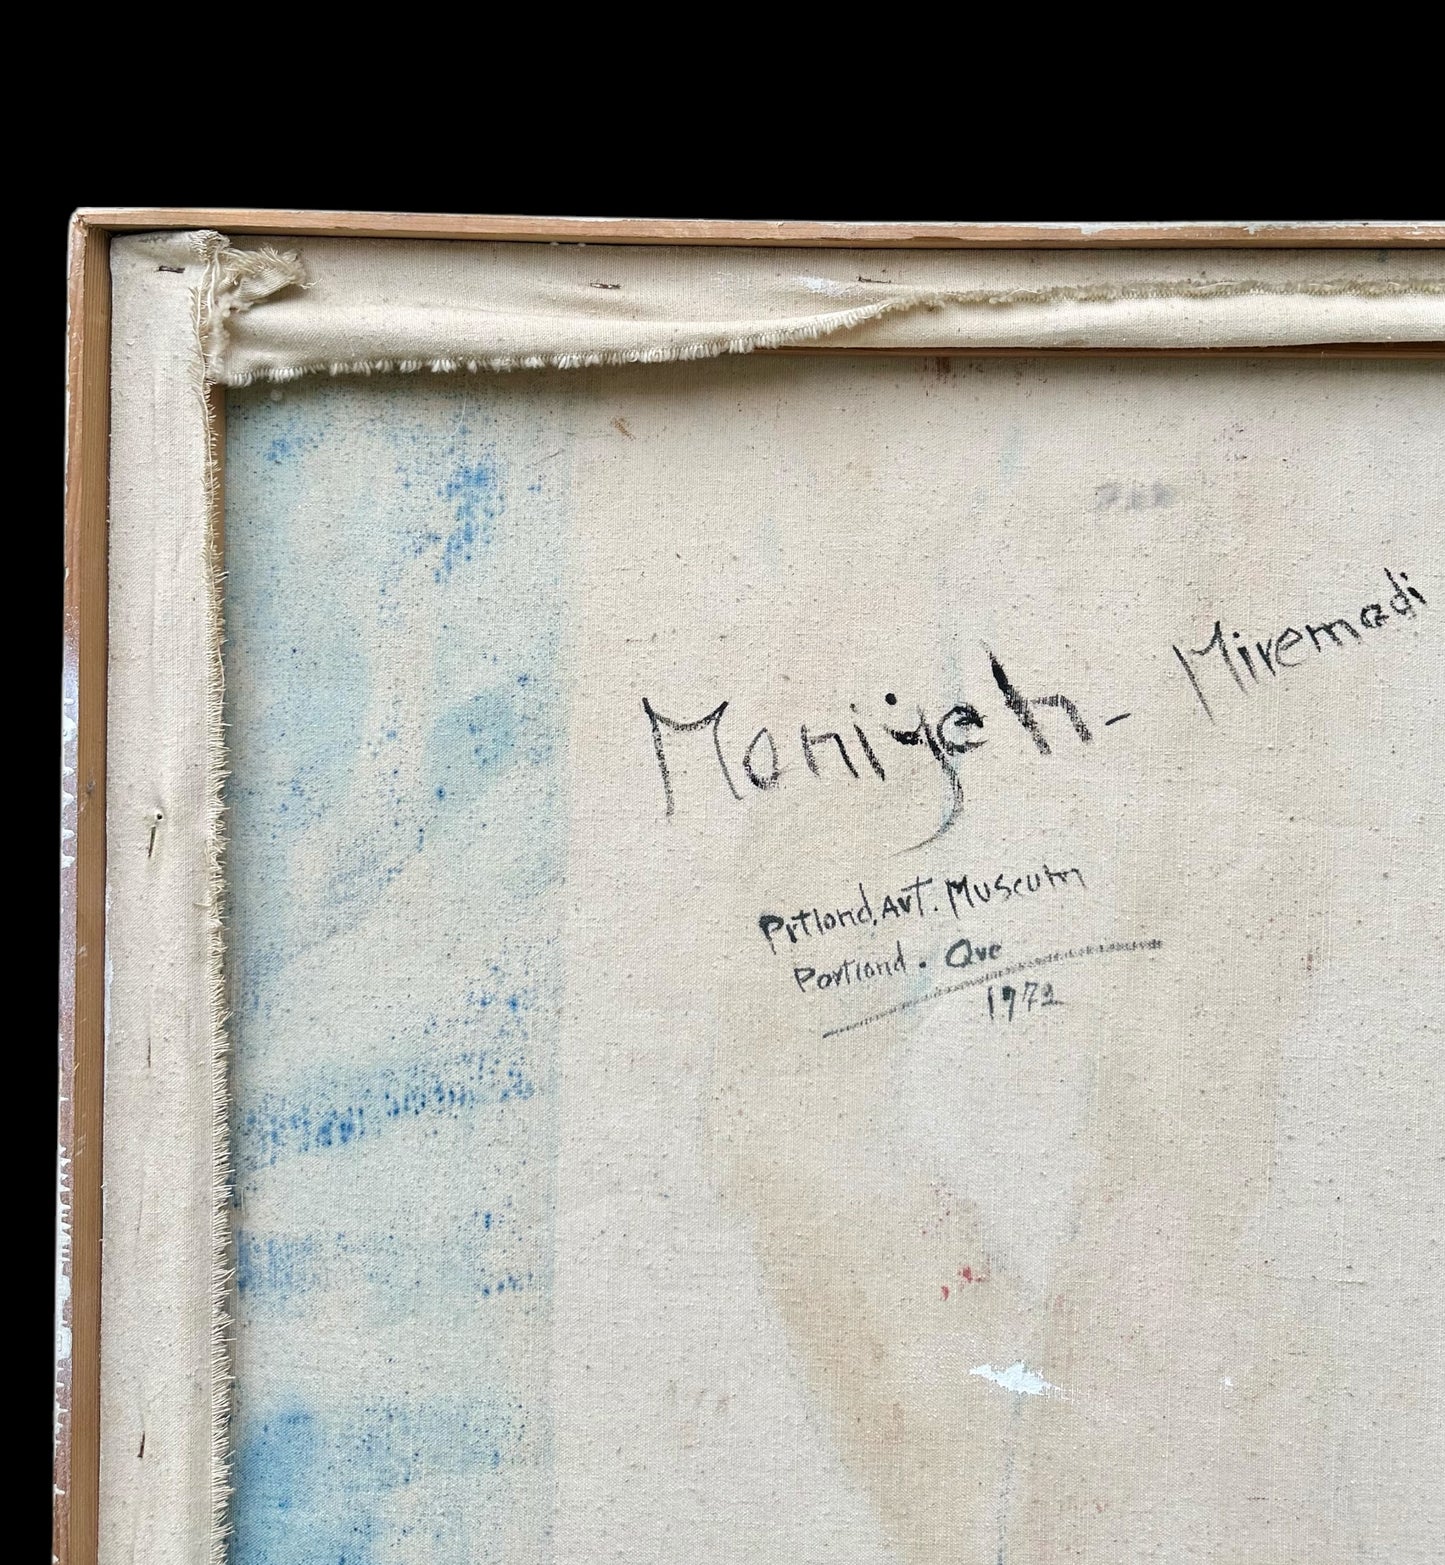 Manijeh - Miremadi
Prtland, Art. Museum
Portland. Ore
1972